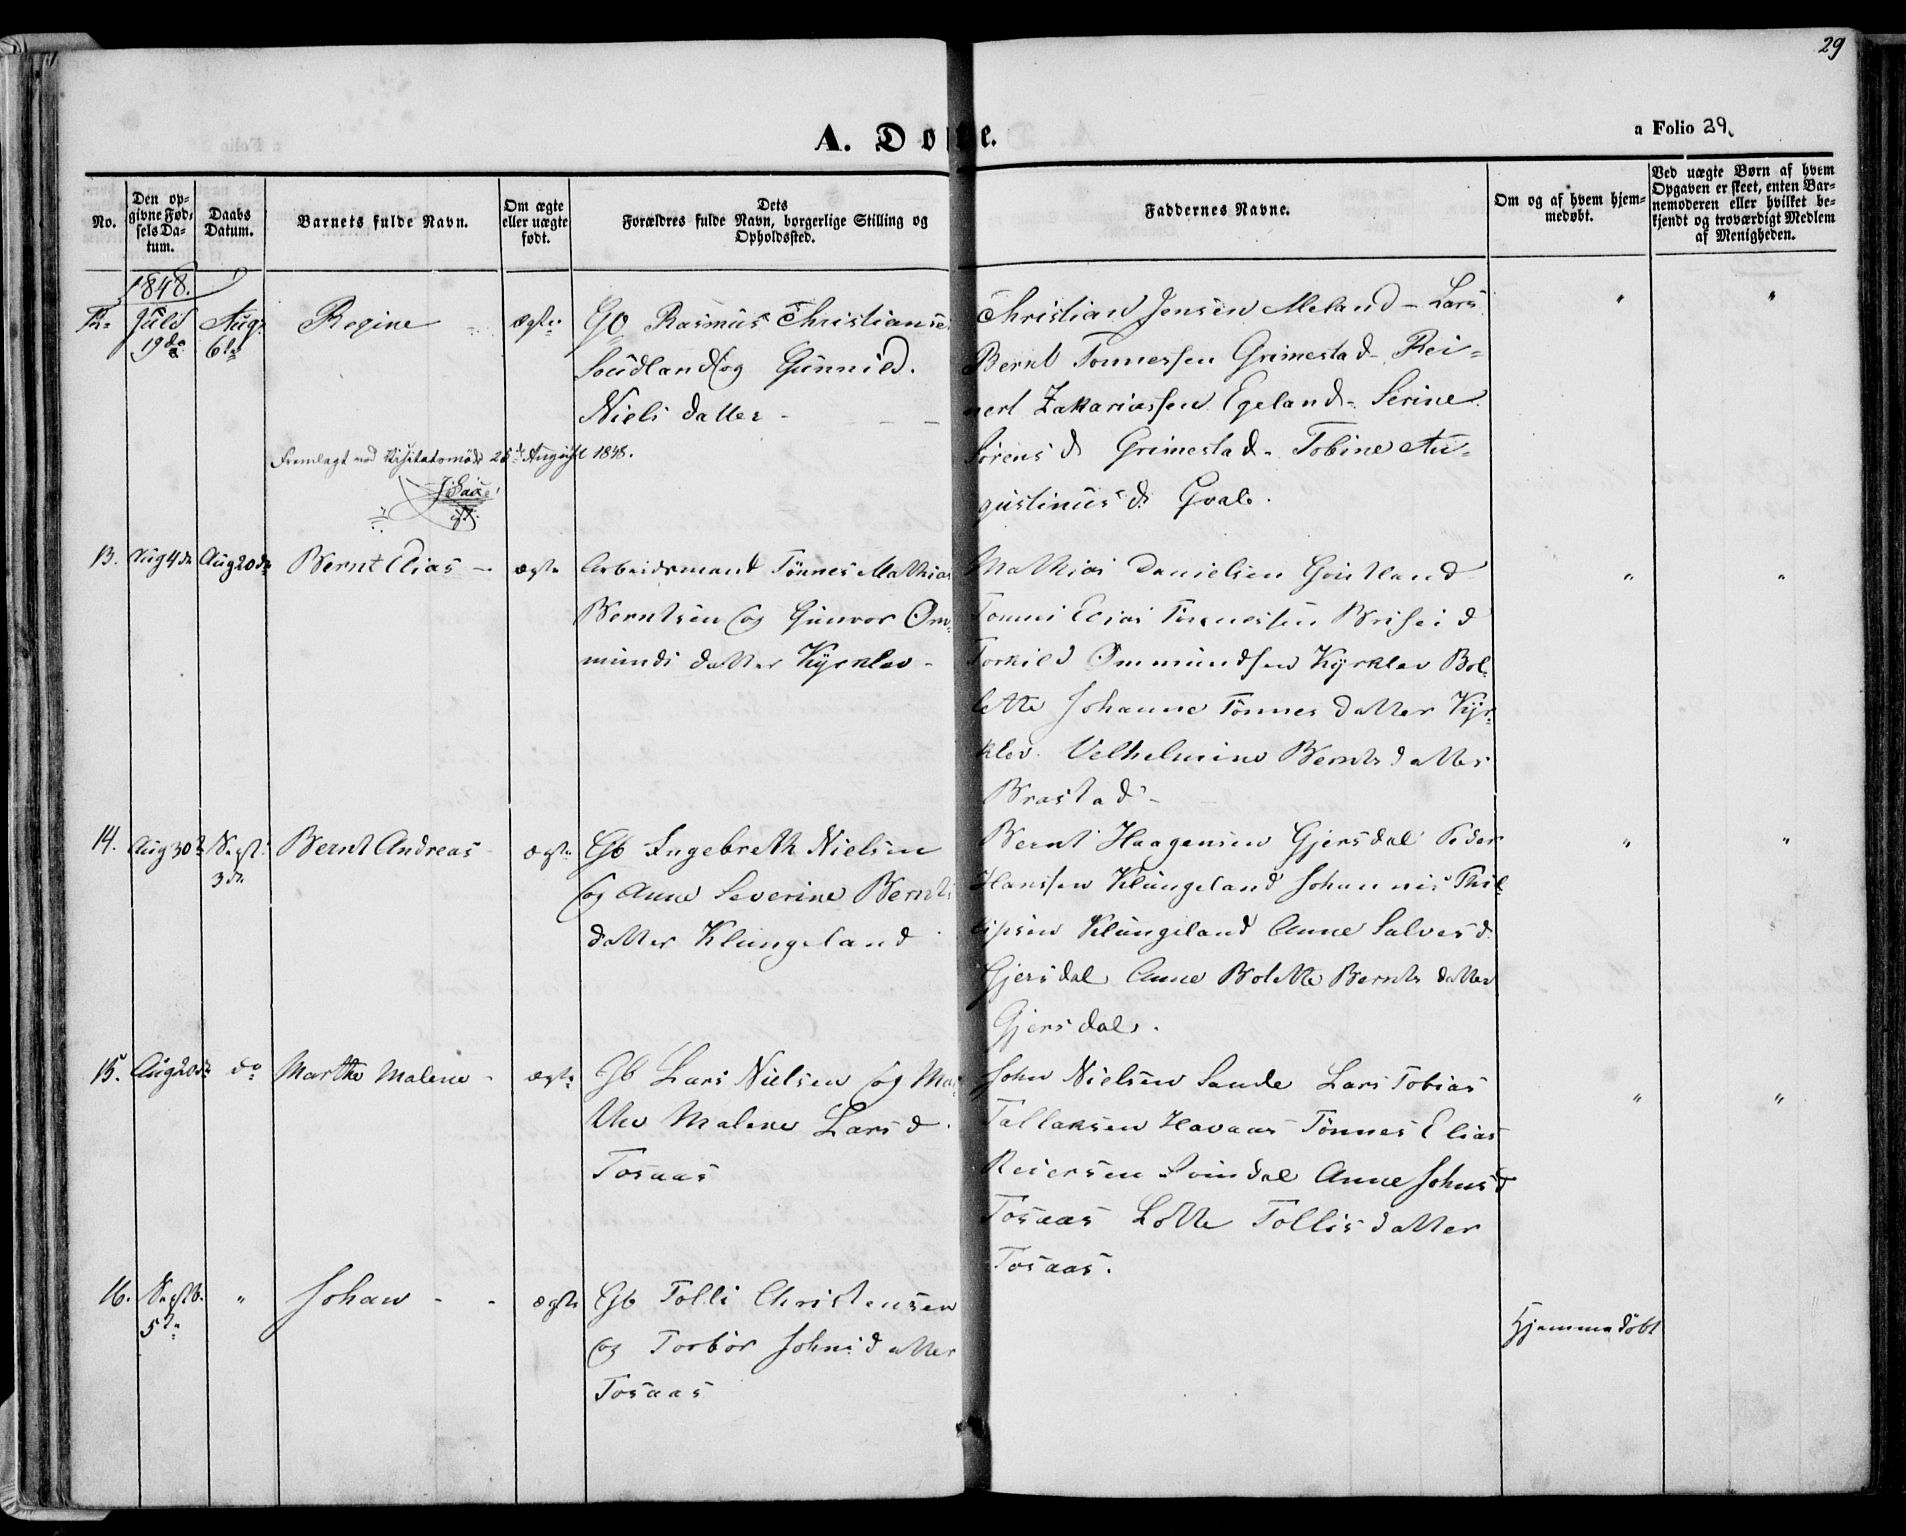 29
A. Døbte.
a Folio 29.
No.
Den op-
givne Fød-
sels Da-
tum.
Daabs
Datum.
Barnets fulde Navn.
Om ægte
eller uægte
født.
Dets
Forældres fulde Navn, borgerlige Stilling og
Opholdssted.
Faddernes Navne.
Om og af hvem hjem-
medøbt.
Ved uægte Børn af hvem
Opgaven er skeet, enten Bar-
nemoderen eller hvilket be-
kjendt og troværdigt Medlem
af Menigheden.
1848.
Juli
19de
Aug.
6te
Regine
ægte
Rasmus Christianse
og Gunnild
Niels datter
Christian Jensen Meland - Lars
Bernt Tønnessen Grimestad - Rei-
nert Zakariassen Egeland - Serine
Sørens d Grimestad - Tobine Au-
gustinus d. Hvale.
" "
Fremlagt ved Visitatsmøde 25 August 1848.
13. Aug 4de Aug 20de Bernt Elias - ægte
Arbeidsmand Tønnes Mathias
Berntsen og Gunvor Om-
munds datter Kyrklev -
Mathias Danielsen
Tønnes Elias Tønnessen Briseid
Torkild Ommundsen Kyrklev Bol-
lette Johanne Tønnes datter Kyr-
klev. Velhelmine Bernts datter
Brastad -
" "
14. Aug 30te Sept. 3de Bernt Andreas ægte
Gb Ingebreth Nielsen
og Anne Severine Bernts
datter Klungeland
Bernt Haagensen Gjersdal Peder
Hanssen Klungeland Johannes Phil-
lipsen Klungeland Anne Salves d.
Gjersdal Anne Bolette Bernts datter
Gjersdal.
" "
15. Aug 20de do Marthe Malene - ægte
Gb Lars Nielsen og Mar-
the Malene Lars d.
Tosaas
John Nielsen Sande Lars Tobias
Tallaksen Havaas Tønnes Elias
Reiersen Svindal Anne Johns d
Tosaas Lotte Tollis datter
Tosaas.
" "
16. Septb. 5te " Johan - - ægte
Gb Tolli Christensen
og Torbør Johns datter
Tosaas
Hjemmedøbt